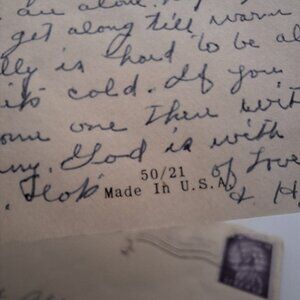 are alone.
get along till warm
is hard to be al
it's cold. If you
one then wit
God is with
50/21 of Love
Made In U.S.A. & H